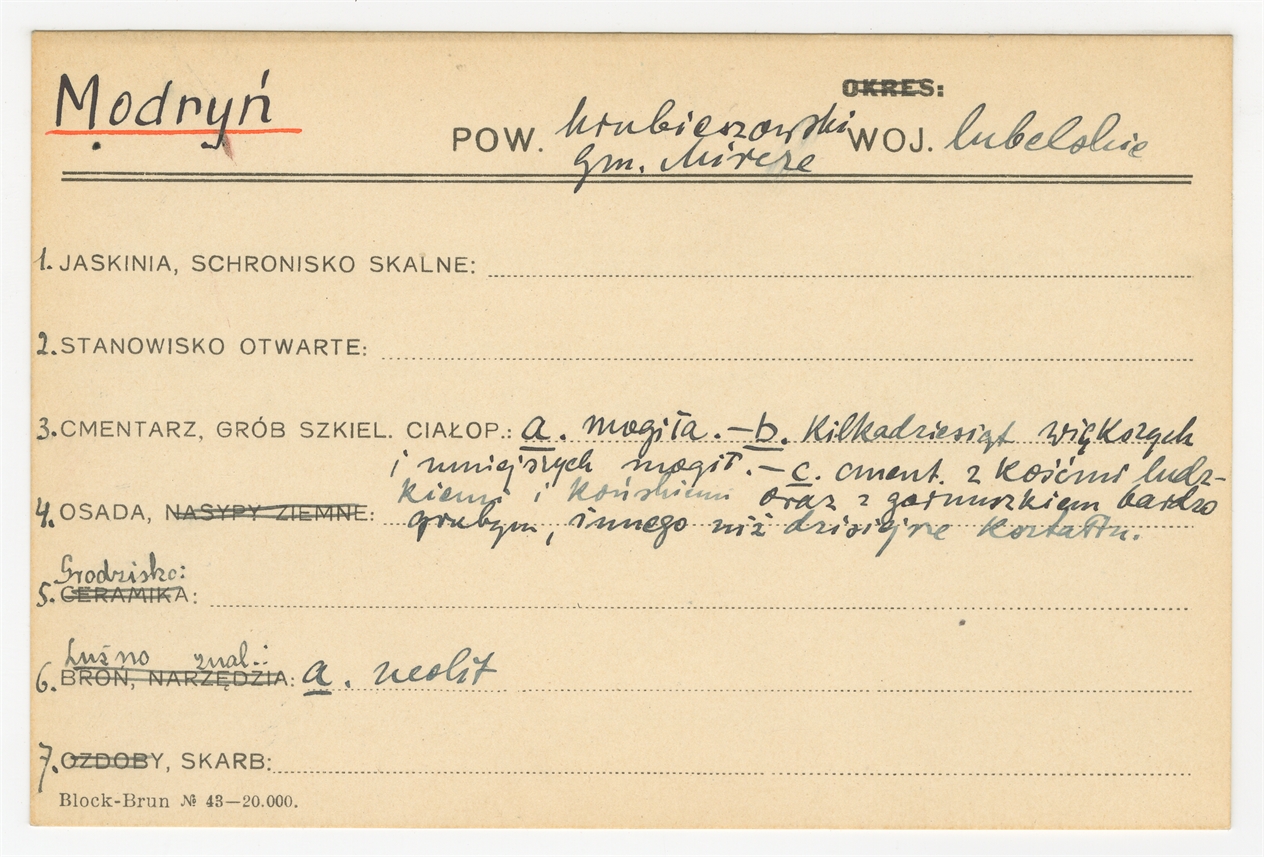 Modryń
OKRES:
POW. hrubieszowski WOJ. lubelskie
gm. Mircze
1. JASKINIA, SCHRONISKO SKALNE:
2. STANOWISKO OTWARTE:
3. CMENTARZ, GRÓB SZKIEL. CIAŁOP.: a. mogiła. – b. kilkadziesiąt większych
i mniejszych mogił. – c. cment. z kośćmi ludz-
kiemi i końskiemi oraz z garnuszkiem bardzo
4. OSADA, NASYPY ZIEMNE: grubym, innego niż dzisiejsze kształtu.
Grodzisko:
5. CERAMIKA:
Luźno znal.:
6. BROŃ, NARZĘDZIA: a. neolit
7. OZDOBY, SKARB:
Block-Brun № 43—20.000.